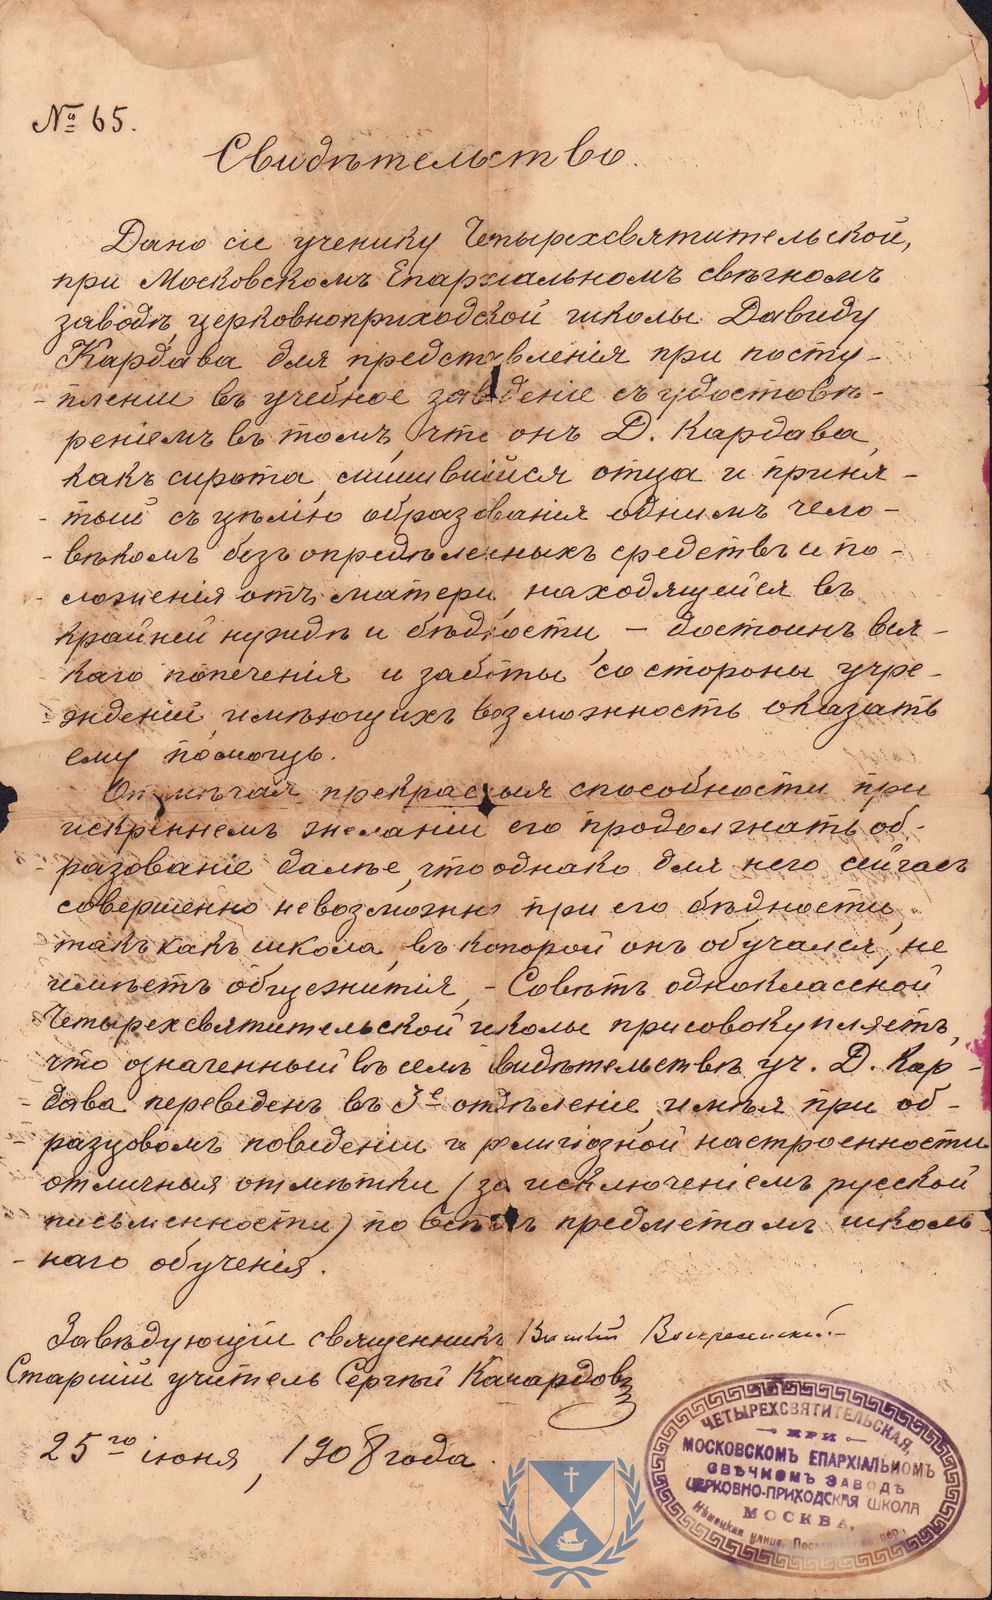 № 65.
Свидѣтельство.
Дано сіе ученику Четырехсвятительской,
при Московскомъ Епархіальномъ свѣчномъ
заводѣ, церковноприходской школы Давиду
Кардава для представленія при посту-
-пленіи въ учебное заведеніе съ удостовѣ-
реніемъ въ томъ, что онъ Д. Кардава,
какъ сирота, лишившійся отца и приня-
-тый съ цѣлію образованія однимъ чело-
-вѣкомъ безъ опредѣленныхъ средствъ и по-
-ложенія отъ матери, находящейся въ
крайней нуждѣ и бѣдности, – достоинъ вся-
-каго попеченія и заботы со стороны учре-
-жденій, имѣющихъ возможность оказать
ему помощь.
Отмѣчая прекрасныя способности при
искреннемъ желаніи его продолжать об-
-разованіе далѣе, что однако для него сейчасъ
совершенно невозможно при его бѣдности,
такъ какъ школа, въ которой онъ обучался, не
имѣетъ общежитія, – Совѣтъ одноклассной
Четырехсвятительской школы присовокупляетъ,
что означенный въ семъ свидѣтельствѣ уч. Д. Кар-
-дава переведенъ въ 3е отдѣленіе, имѣя при об-
-разцовомъ поведеніи и религіозной настроенности
отличныя отмѣтки (за исключеніемъ русской
письменности) по всѣмъ предметамъ школь-
-наго обученія.
Завѣдующій священникъ Воскресенскій
Старшій учитель Сергѣй Качардовъ
25го іюня, 1908 года.
ЧЕТЫРЕХСВЯТИТЕЛЬСКАЯ,
— ПРИ —
МОСКОВСКОМЪ ЕПАРХІАЛЬНОМЪ
СВѢЧНОМЪ ЗАВОДѢ
ЦЕРКОВНО-ПРИХОДСКАЯ ШКОЛА
МОСКВА,
Нѣмецкая улица, пер.